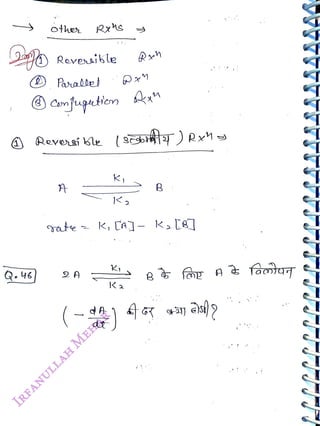 → other Rxns ⇒
① Reversible Rxn
② Parallel Rxn
③ Conjugation Rxn
① Reversible (उत्क्रमणीय) Rxn ⇒
K1
A ⇌ B
K2
rate = K1 [A] - K2 [B]
Q.46 2A ⇌ B के लिए A के विलोपन
K1
K2
(- dA/dt) की दर क्या होगी?
IRFANULLAH